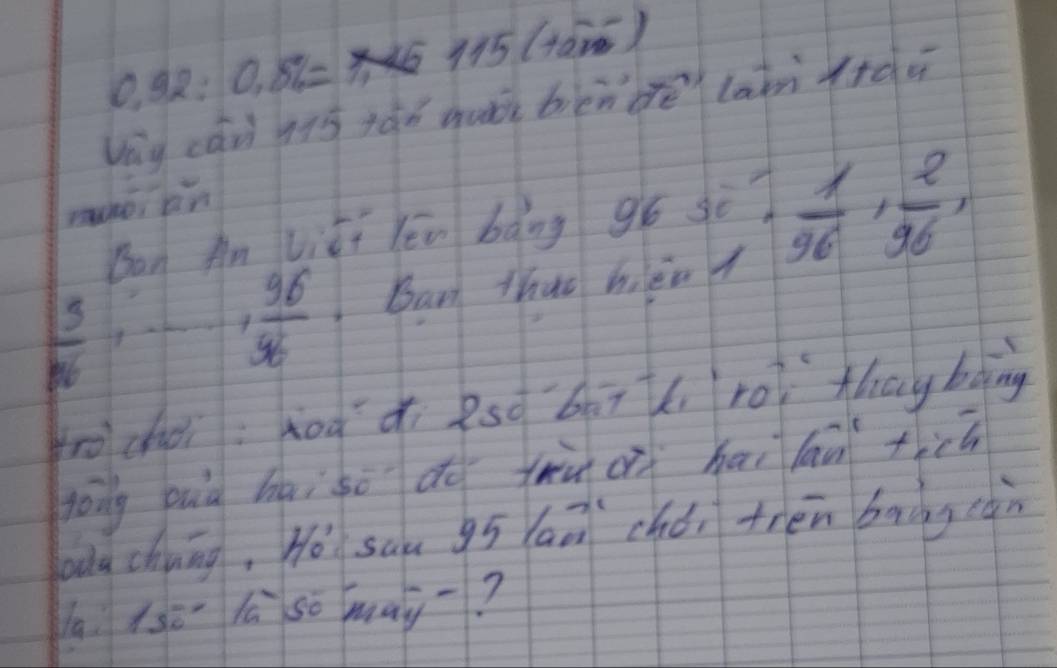 0,92 : 0,8% = 115 (tấn)
Vậy cần 115 tấn nước biển để làm 1 tấn
muối ăn
Bạn An viết lên bảng 96 số: 1/96, 2/96,
3/96, ..., 96/96. Bạn thực hiện 1
trò chơi: xoá đi 2 số bất kì rồi thay bằng
tổng của hai số đó trừ đi hai lần tích
của chúng. Hỏi sau 95 lần chơi trên bảng còn
lại 1 số là số mấy?